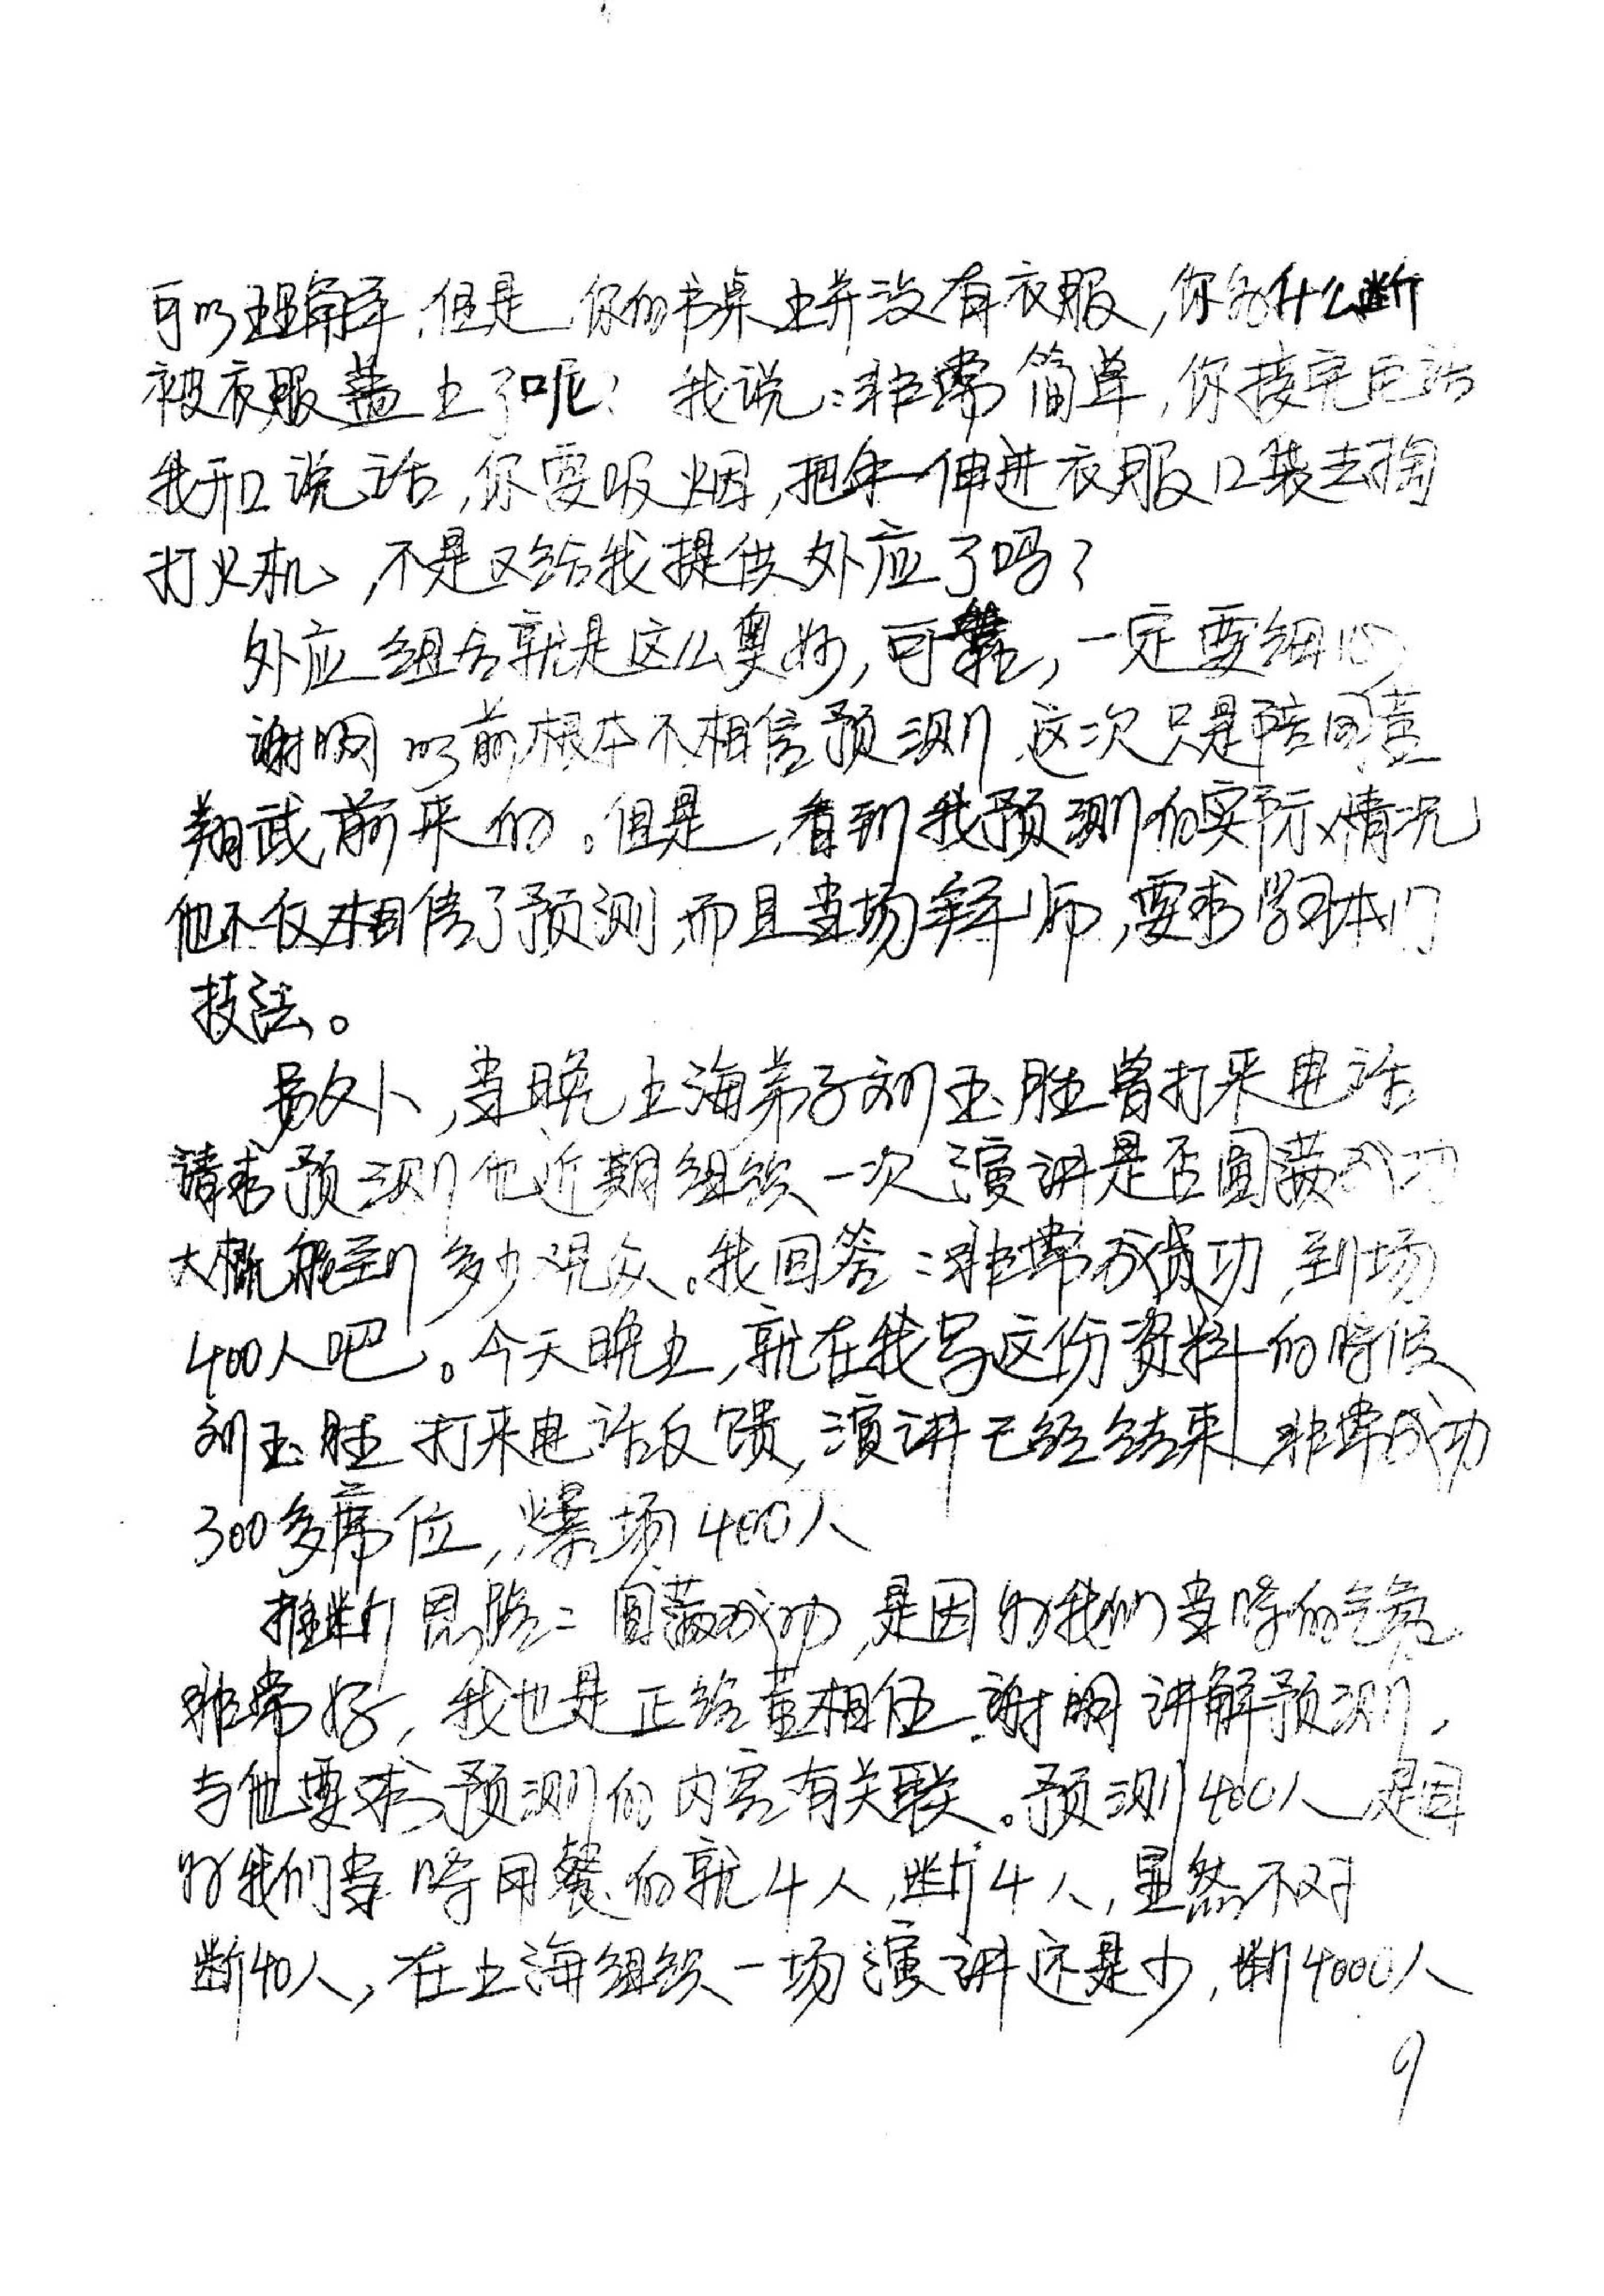 可以理解,但是,你的书桌上并没有衣服,你为什么断
被衣服盖上了呢?我说:非常简单,你接完电话
我开口说话,你要吸烟,把手伸进衣服口袋去掏
打火机,不是又给我提供外应了吗?
外应组合就是这么奥妙,可靠,一定要细心
谢明以前根本不相信预测,这次只是陪同董
翔武前来的。但是,看到我预测的实际情况
他不仅相信了预测,而且当场拜师,要求学习本门
技法。
另外,当晚上海弟子刘玉胜曾打来电话
请求预测他近期组织一次演讲是否圆满成功
大概能到多少观众。我回答:非常成功,到场
400人吧。今天晚上,就在我写这份资料的时候
刘玉胜打来电话反馈,演讲已经结束,非常成功
300多席位,爆场400人
推断思路:圆满成功,是因为我们当时的气氛
非常好,我也是正给董相伍、谢明讲解预测,
与他要求预测的内容有关联。预测400人是因
为我们当时用餐的就4人,断4人,显然不对
断40人,在上海组织一场演讲还是少,断4000人
9